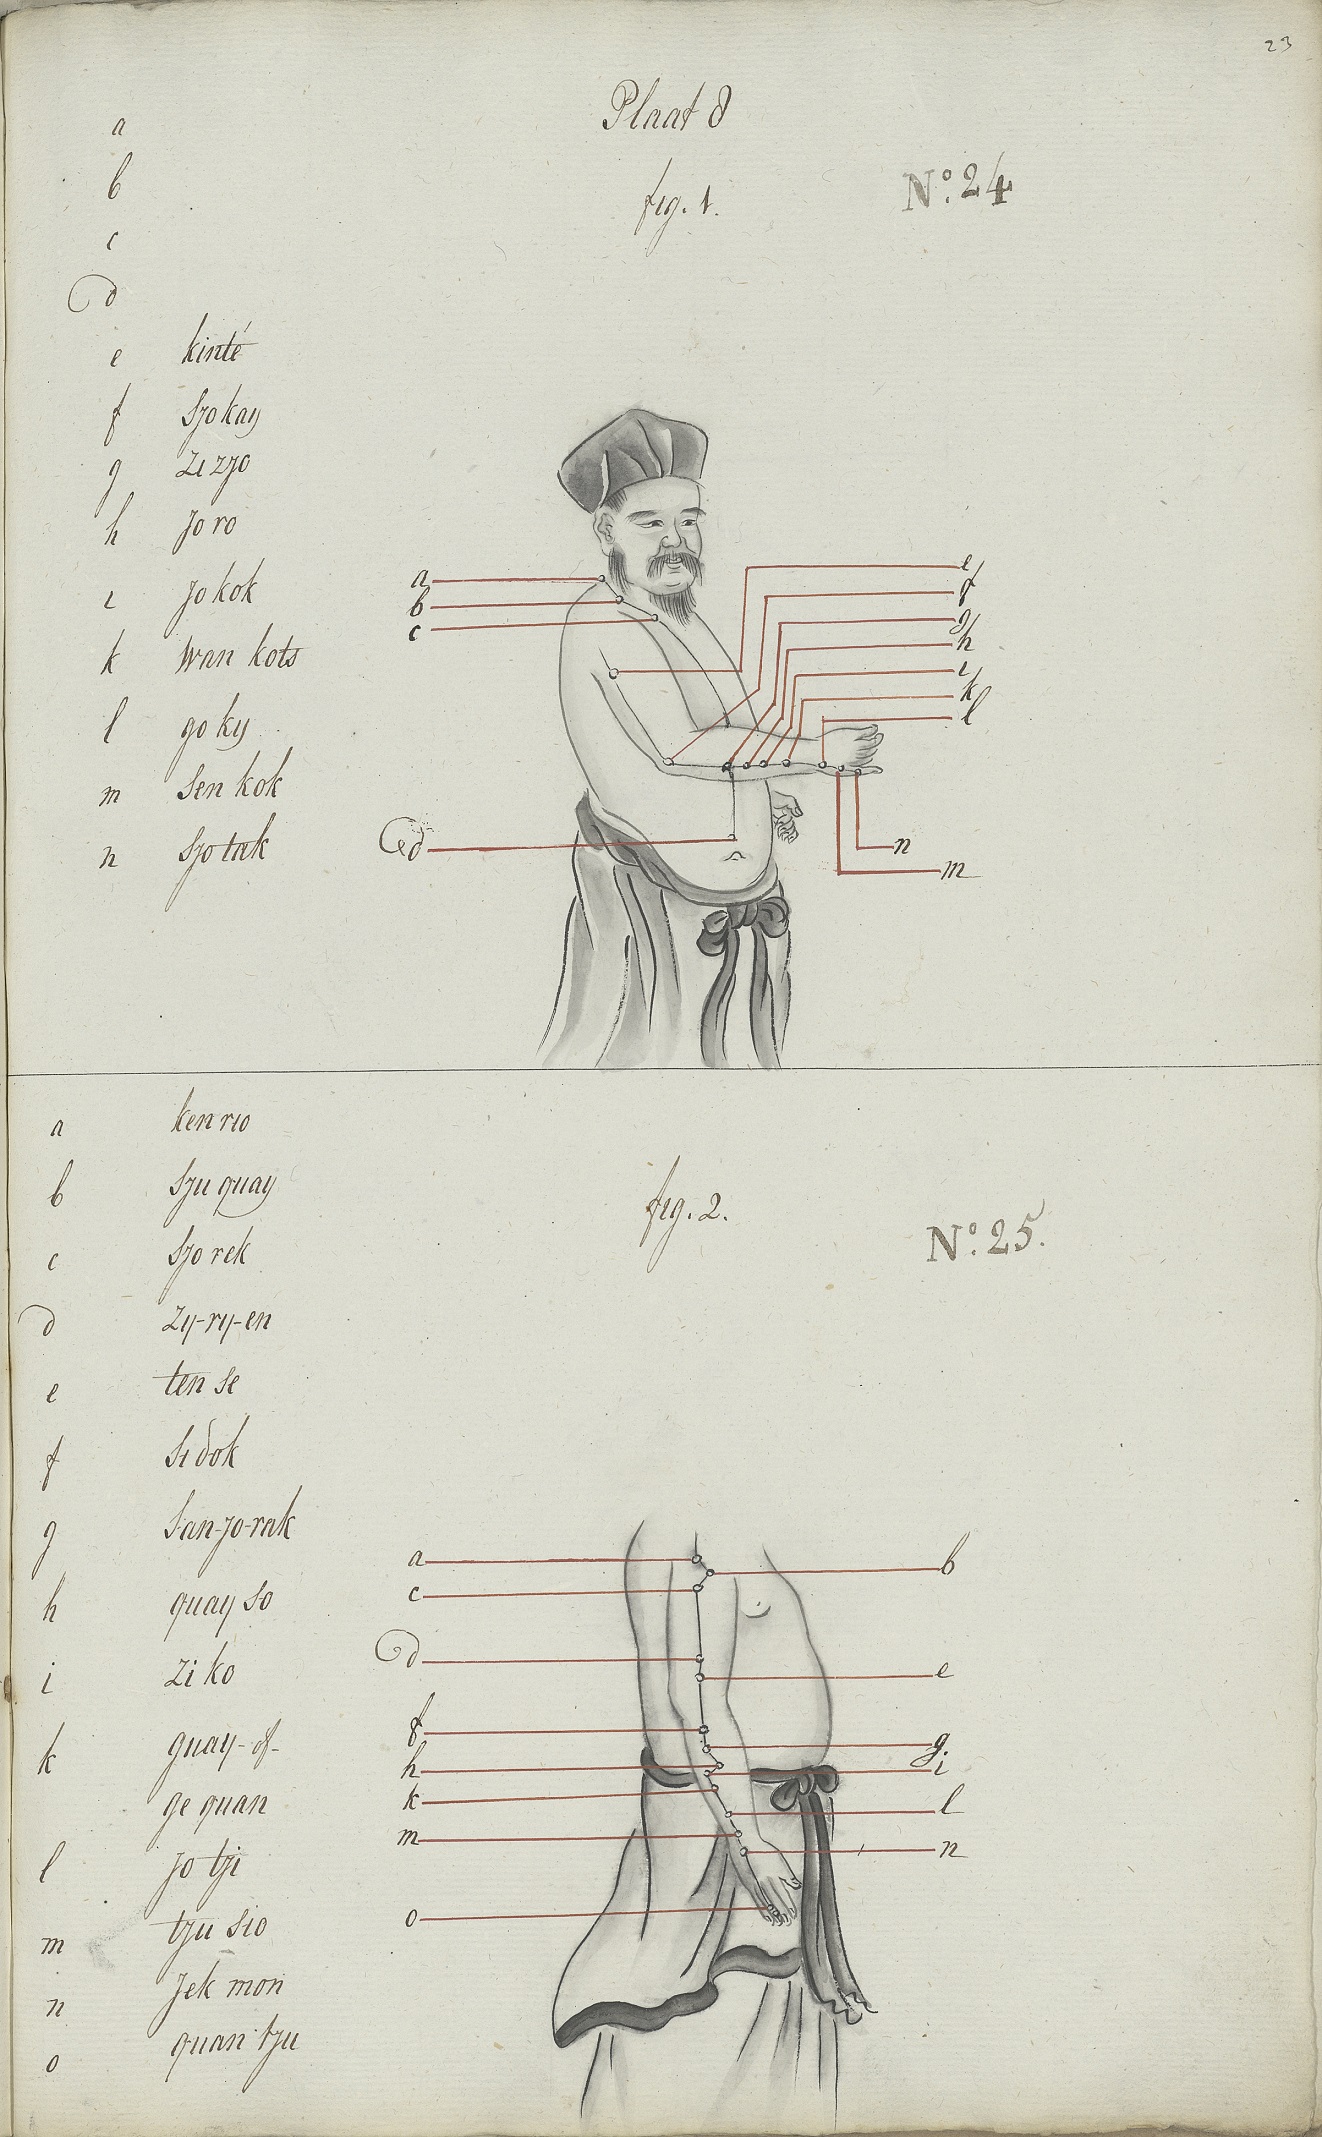 23
Plaat 8
fig. 1.
No. 24
a
b
c
d
e kinté
f Szokay
g Zezyo
h Joro
i Jokok
k Wan kots
l go ky
m Sen kok
n Szo tak
a
b
c
d
e
f
g
h
i
k
l
n
m
fig. 2.
No. 25.
a kenrio
b Szu quay
c Szo rek
d Zy-ry-en
e ten se
f Si dok
g San-jo-rak
h quay so
i Zi ko
k quay-of-
ge quan
l Jo tzi
m tzu sio
n Jek mon
o quan tzu
a
b
c
d
e
f
g
h
i
k
l
m
n
o